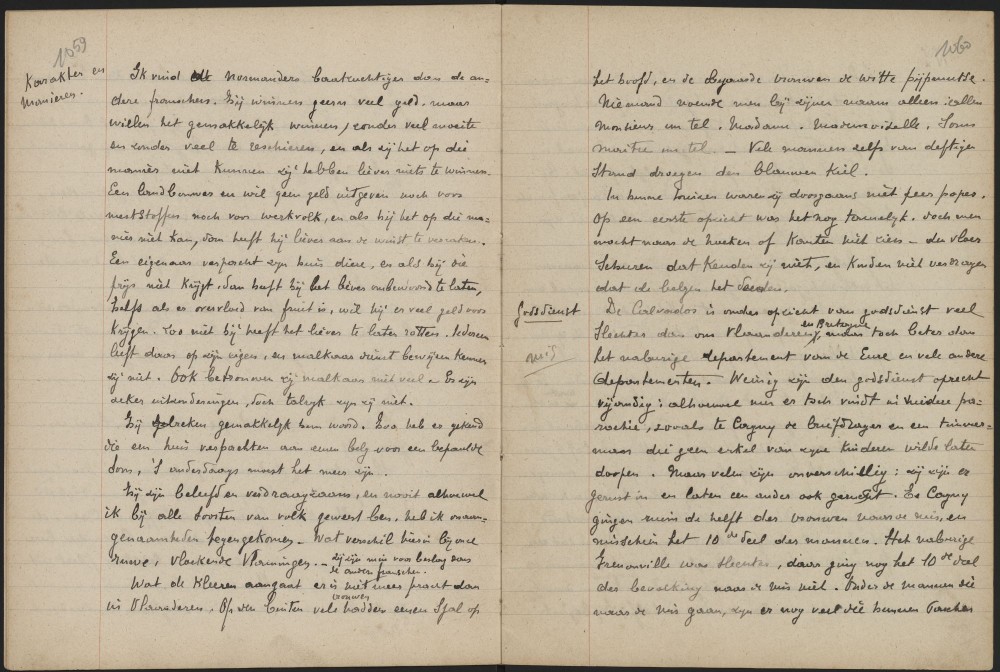 1059
Karakter en
Manieren.
Ik vind de Normanders baatzuchtiger dan de an=
dere franschen. Zij winnen geern veel geld, maar
willen het gemakkelijk winnen, zonder veel moeite
en zonder veel te verschieten, en als zij het op die
manier niet kunnen zij hebben liever niets te winnen.
Een landbouwer en wil geen geld uitgeven noch voor
meststoffen noch voor werkvolk, en als hij het op die ma=
nier niet kan, dan heeft hij liever aan de winst te verzaken.
Een eigenaar verpacht zijn huis diere, en als hij die
prijs niet krijgt, dan heeft hij het liever onbewoond te laten,
Zelfs als er overvloed van fruit is, wil hij er veel geld voor
krijgen. Zoo niet hij heeft het liever te laten rotten. Iedereen
leeft daar op zijn eigen, en malkaar dienst bewijzen kennen
zij niet. Ook betrouwen zij malkaar niet veel. Er zijn
zeker uitzonderingen, doch talrijk zijn zij niet.
Zij breken gemakkelijk hun woord. Zoo heb er gekend
die een huis verpachten aan eenen belg voor een bepaalde
som, 's anderdaags moest het meer zijn.
Zij zijn beleefd en verdraagzaam, en nooit alhoewel
ik bij alle soorten van volk geweest ben, heb ik onaan=
genaamheden tegengekomen. Wat verschil hierin bij onze
ruwe, vloekende Vlamingen. Zij zijn min voor beslag dan
de andere franschen.
Wat de kleeren aangaat er is niet meer pracht dan
in Vlaanderen. Op den buiten vele vrouwen hadden eenen Sjal op
1060
het hoofd, en de bejaarde vrouwen de witte pijpemutse.
Niemand noemde men bij zijnen naam alleen: allen
Monsieur un tel, Madame, Mademoiselle. Soms
maître un tel. — Vele mannen zelfs van deftigen
Stand droegen den blauwen kiel.
In hunne huizen waren zij doorgaans niet zeer proper.
Op een eerste opzicht was het nog tamelijk. doch men
mocht naar de hoeken of kanten niet zien — den vloer
Schuren dat kenden zij niet, en konden niet verdragen
dat de belgen het deden.
Godsdienst
De Calvados is onder opzicht van godsdienst veel
Slechter dan ons Vlaanderen en Bretagne, maar toch beter dan
het naburige departement van de Eure en vele andere
departementen. Weinig zijn den godsdienst oprecht
vijandig: alhoewel men er toch vindt in iedere pa=
rochie, zooals te Cagny de briefdrager en een timmer=
man die geen enkel van zijne kinderen wilde laten
doopen. Maar velen zijn onverschillig: zij zijn er
gerust in en laten een ander ook gerust. Te Cagny
gingen min de helft der vrouwen naar de mis, en
misschien het 10de deel der mannen. Het naburige
Frénouville was slechter, daar ging nog het 10de deel
der bevolking naar de mis niet. Onder de mannen die
naar de mis gaan, zijn er nog veel die hunnen Paschen